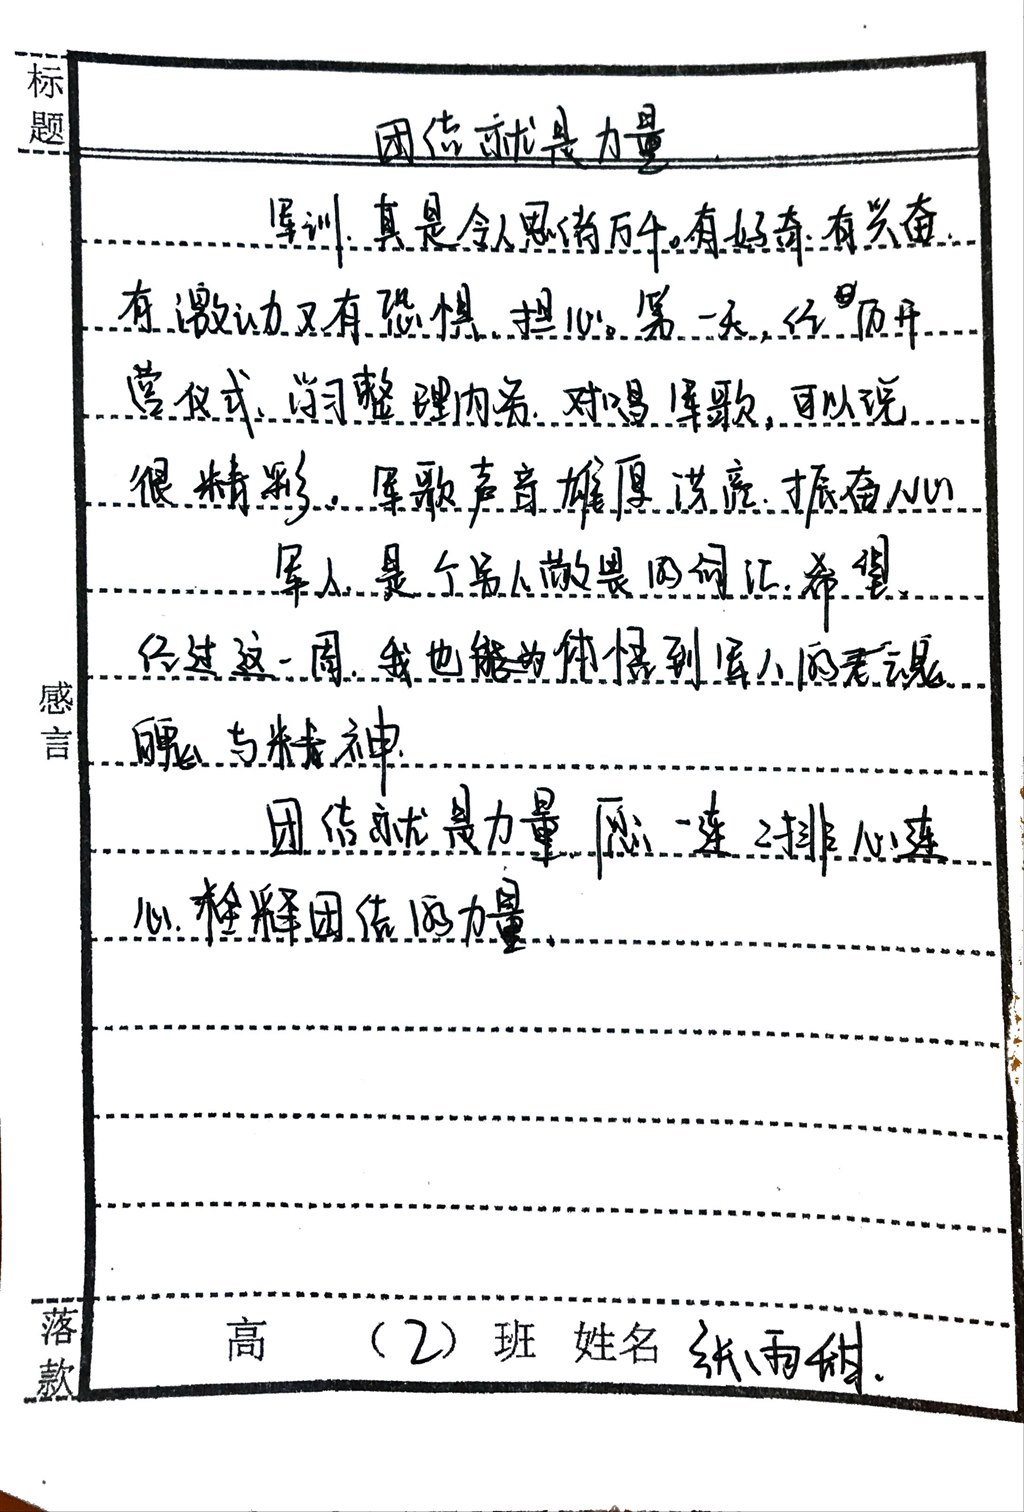 标题
团结就是力量
军训,真是令人思绪万千。有好奇,有兴奋,
有激动又有恐惧、担心。第一天,经历开
营仪式、学习整理内务、对唱军歌,可以说
很精彩。军歌声音雄厚洪亮,振奋人心
军人,是个另人敬畏的词汇,希望,
经过这一周,我也能体悟到军人的
与精神.
感言
团结就是力量,愿一连2排心连
心,释团结的力量.
落款
高 (2) 班 姓名 张雨甜.